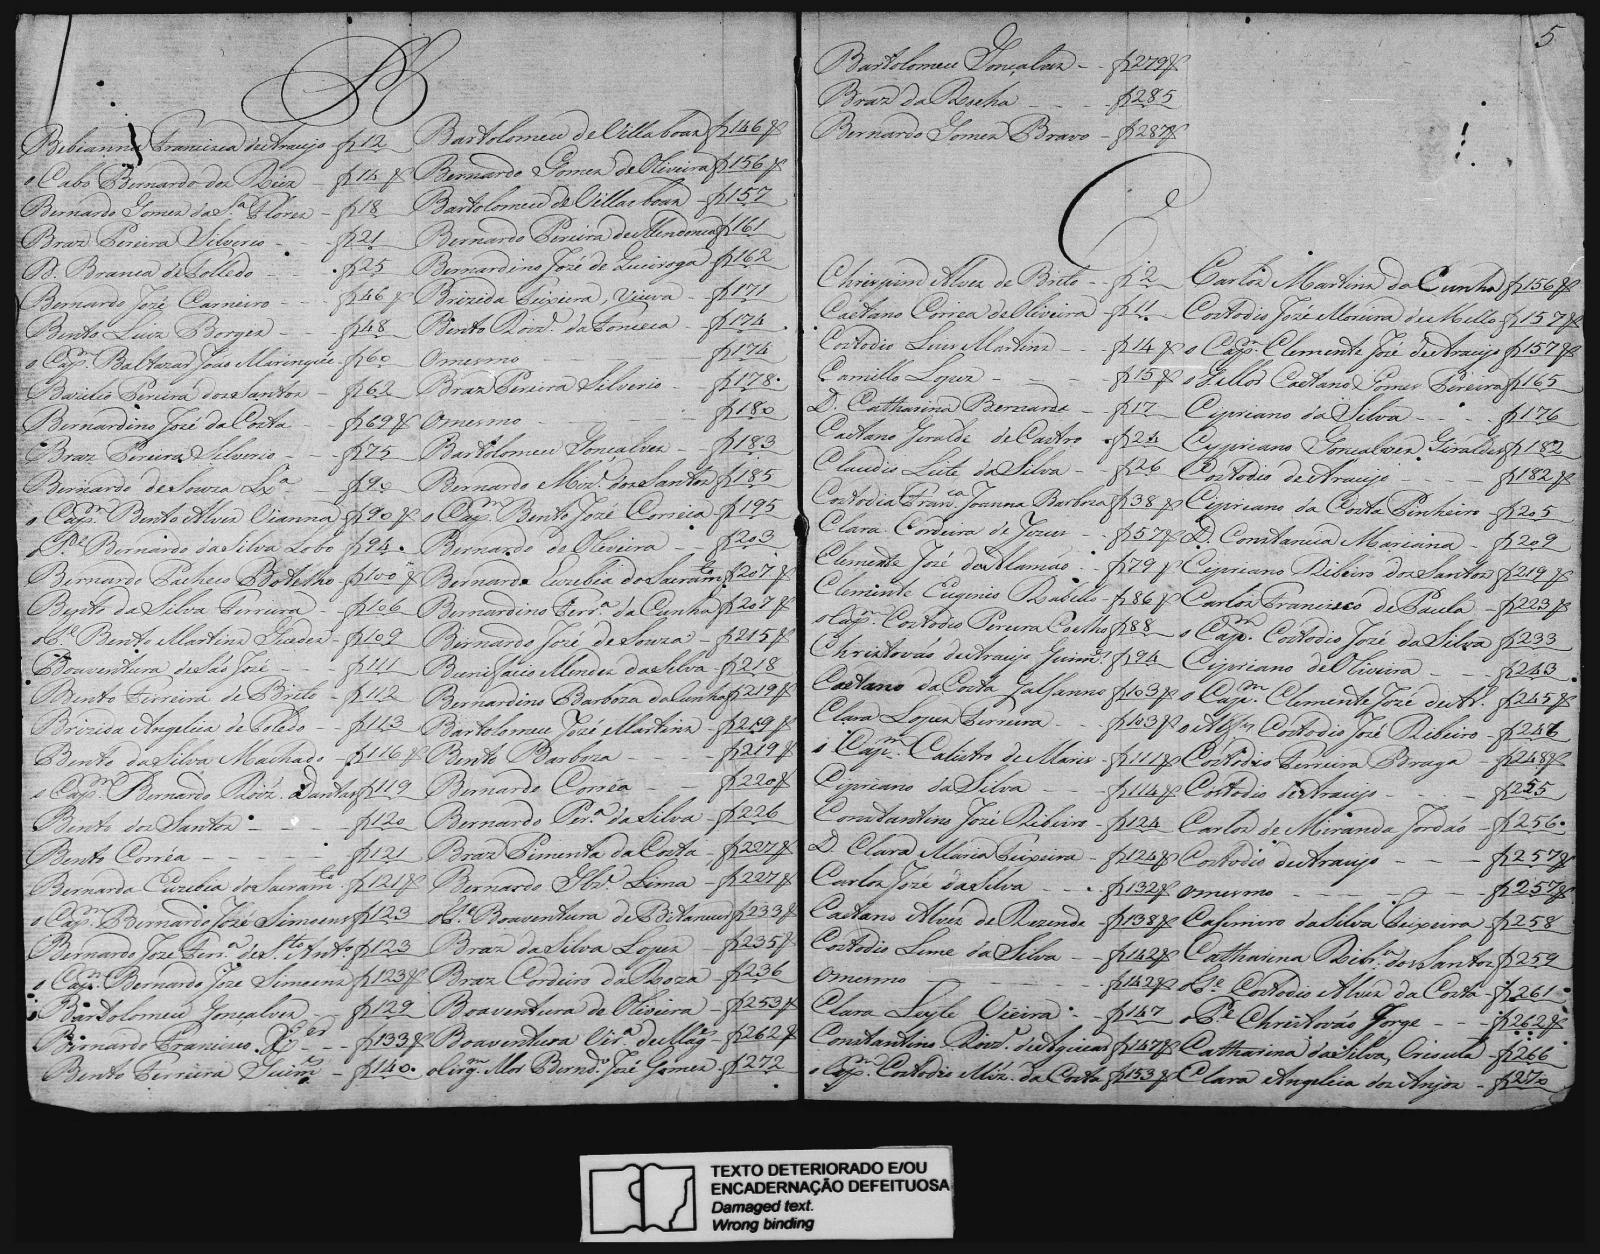 B
Bebianna Francisca de Araujo f 12
o Cabo Bernardo dos Reiz - f 14 ℣
Bernardo Gomez da S.ª Flores - f 18
Braz Pereira Silverio - - f 21
D. Branca de Tolledo - - f 25
Bernardo José Carneiro - - f 46 ℣
Bento Luiz Borgez - - f 48
o Cap.m Baltazar João Mayrinque f 60
Bazilio Pereira dos Santos - f 62
Bernardino José da Costa - f 69 ℣
Braz Pereira Silverio - - f 75
Bernardo de Souza - f 90
o Cap.m Bento Alvez Vianna f 90 ℣
o P.e Bernardo da Silva Lobo f 94
Bernardo Pacheco Botelho - f 100
Bento da Silva Ferreira - f 106
Bento Martins Guedez - f 109
Boaventura de São José - - f 111
Bento Ferreira de Brito - f 112
Brizida Angelica de Toledo - f 113
Bento da Silva Machado - f 116 ℣
o Cap.m Bernardo Roiz. Dantas f 119
Bento dos Santos - - - f 120
Bento Corrêa - - - - f 121
Bernarda Euzebia do Sacram.to f 121 ℣
o Cap.m Bernardo José Simoens f 123
Bernardo José Ferr.ª de S.to Ant.o f 123
o Cap.m Bernardo José Simoens f 123 ℣
Bartolomeu Gonçalvez - f 129
Bernardo Francisco - - f 133 ℣
Bento Ferreira Guim.es - f 140
Bartolomeu de Villaboas f 146 ℣
Bernardo Gomez de Oliveira f 156 ℣
Bartolomeu de Villasboas - f 157
Bernardo Pereira de Mendonça f 161
Bernardino José de Queiroga f 162
Brizida Teixeira, Viuva - f 171
Bento Roiz. da Fonseca - f 174
O mesmo - - - f 174
Braz Pereira Silverio - f 178
O mesmo - - - f 180
Bartolomeu Gonçalvez - f 183
Bernardo Miz. dos Santos f 185
o Cap.m Bento José Corrêia f 195
Bernardo de Oliveira - f 203
Bernarda Euzebia do Sacram.to f 207 ℣
Bernardino Ferr.ª da Cunha f 207 ℣
Bernardo José de Souza - f 215 ℣
Bonifacio Mendez da Silva - f 218
Bernardino Barboza da Cunha f 219 ℣
Bartolomeu José Martins - f 219 ℣
Bento Barboza - - - f 219 ℣
Bernardo Corrêa - - f 220 ℣
Bernardo Per.ª da Silva - f 226
Braz Pimenta da Costa - f 227 ℣
Bernardo Glz. Lima - f 227 ℣
Boaventura de Bitancur f 233 ℣
Braz da Silva Lopez - f 235 ℣
Braz Cordeiro da Roza - f 236
Boaventura de Oliveira - f 253 ℣
Boaventura - f 262 ℣
o Cirg.m Mor Bern.do José Gomez - f 272
5
Bartolomeu Gonçalvez - - f 279 ℣
Braz da Rocha - - - f 285
Bernardo Gomez Bravo - f 287 ℣
C
Chrispim Alvez de Brito - f 2
Caetano Correa de Oliveira f 11
Custodio Luis Martins - - f 14 ℣
Camillo Lopez - - - f 15 ℣
D. Catharina Bernarda - f 17
Caetano Geraldo de Castro f 24
Claudio Leite da Silva - f 26
Custodia Fran.ca Joanna Barboza f 38 ℣
Clara Cordeira de Jezus - - f 57 ℣
Clemente José de Alamão - f 79 ℣
Clemente Eugenio Rabello - f 86 ℣
o Cap.m Custodio Pereira Coelho f 88
Christovão de Araujo Guim.es f 94
Caetano da Costa f 103 ℣
Clara Lopez Ferreira - - f 103 ℣
o Cap.m Calistro de Maris - f 111 ℣
Cipriano da Silva - - f 114 ℣
Constantino José Ribeiro - f 124
D. Clara Maria Teixeira - f 124 ℣
Carlos José da Silva - - f 132 ℣
Caetano Alvez de Rezende - f 138 ℣
Custodio Leme da Silva - f 142 ℣
O mesmo - - - f 142 ℣
Clara Leyte Vieira - - f 147
Constantino Roiz. de Aguiar f 147 ℣
o Cap.m Custodio Miz. da Costa f 153 ℣
Carlos Martins da Cunha f 156 ℣
Custodio José Moreira de Mello f 157 ℣
o Cap.m Clemente José de Araujo f 157 ℣
Caetano Gomes Pereira f 165
Cipriano da Silva - - f 176
Cypriano Gonçalvez Giraldes f 182
Custodio de Araujo - - f 182 ℣
Cipriano da Costa Pinheiro - f 205
D. Constancia Marciana - f 209
Cipriano Ribeiro dos Santos f 219 ℣
Carlos Francisco de Paula - f 223 ℣
o Cap.m Custodio José da Silva f 233
Cipriano de Oliveira - - f 243
o Cap.m Clemente José de Ar. - f 245 ℣
Custodio José Ribeiro - f 246
Custodio Ferreira Braga - f 248 ℣
Custodio de Araujo - - f 255
Carlos de Miranda Jordão - f 256
Custodio de Araujo - - f 257 ℣
O mesmo - - - f 257 ℣
Casemiro da Silva Teixeira - f 258
Catharina Rib.ª dos Santos f 259
Custodio Alvez da Costa - f 261
o P.e Christovão Jorge - - f 262 ℣
Catharina da Silva, Crioula - f 266
Clara Angelica dos Anjos - f 270
TEXTO DETERIORADO E/OU
ENCADERNAÇÃO DEFEITUOSA
Damaged text.
Wrong binding